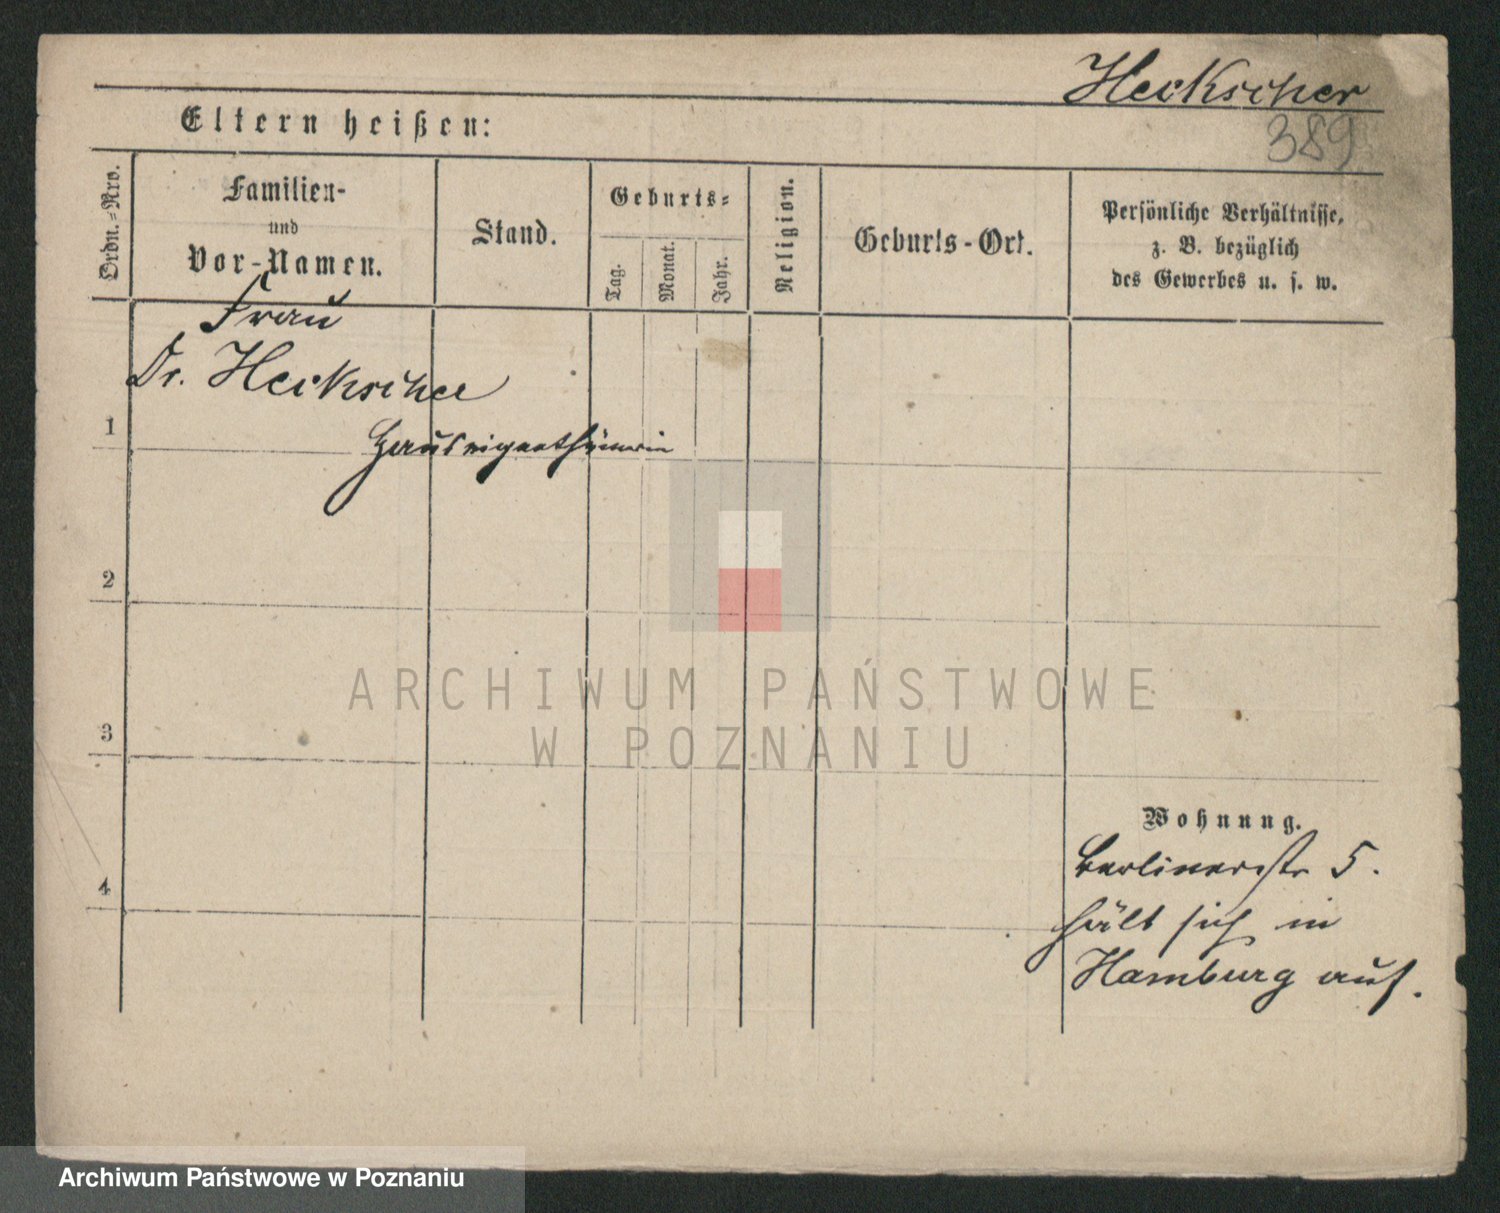 Heckscher
389
Eltern heißen:
Ordn.=Nro.
Familien-
und
Vor-Namen.
Stand.
Geburts=
Tag.
Monat.
Jahr.
Religion.
Geburts-Ort.
Persönliche Verhältnisse,
z. B. bezüglich
des Gewerbes u. s. w.
Frau
Dr. Heckscher
1
Hauseigenthümerin
2
3
Wohnung.
4
Berlinerstr 5.
hält sich in
Hamburg auf.
ARCHIWUM PAŃSTWOWE
W POZNANIU
Archiwum Państwowe w Poznaniu